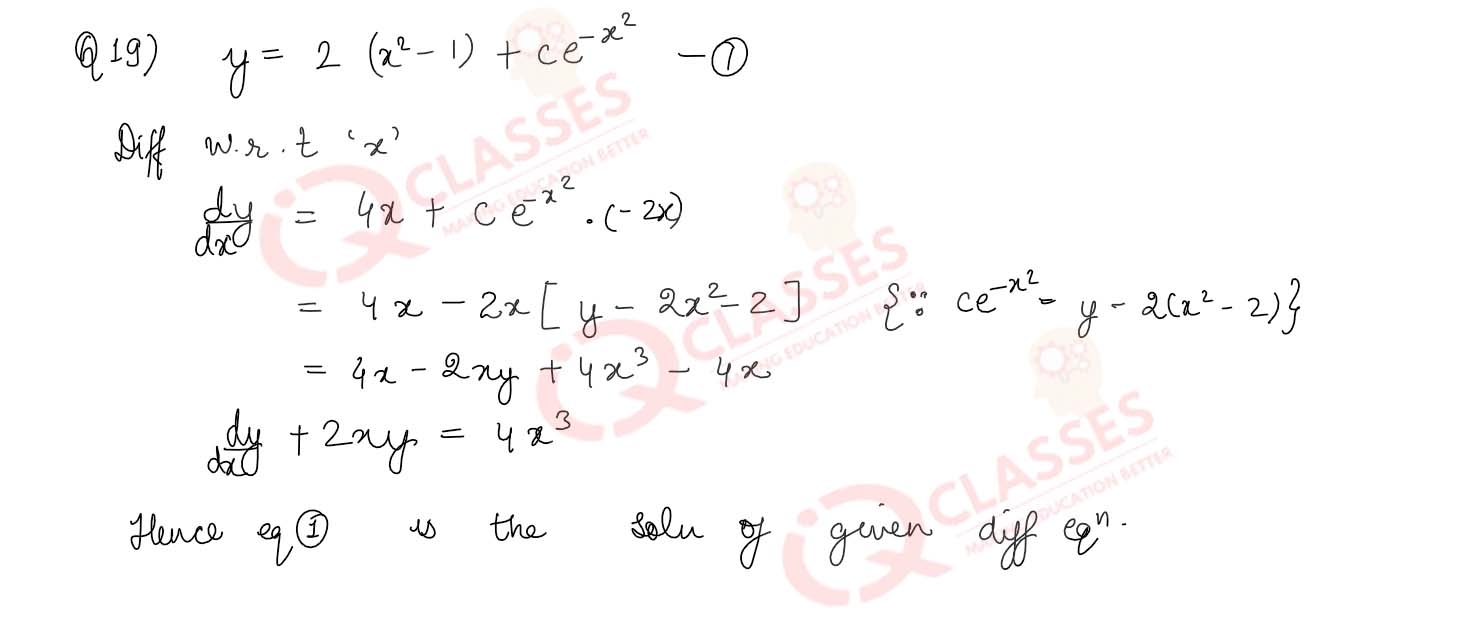 Q19) y = 2 (x² - 1) + ce^{-x²} - ①
Diff w.r.t 'x'
dy/dx = 4x + ce^{-x²} . (-2x)
= 4x - 2x [ y - 2x² - 2 ] {∵ ce^{-x²} = y - 2(x² - 2)}
= 4x - 2xy + 4x³ - 4x
dy/dx + 2xy = 4x³
Hence eq ① is the solu of given diff eqⁿ.
IQ CLASSES
MAKING EDUCATION BETTER
IQ CLASSES
MAKING EDUCATION BETTER
IQ CLASSES
MAKING EDUCATION BETTER